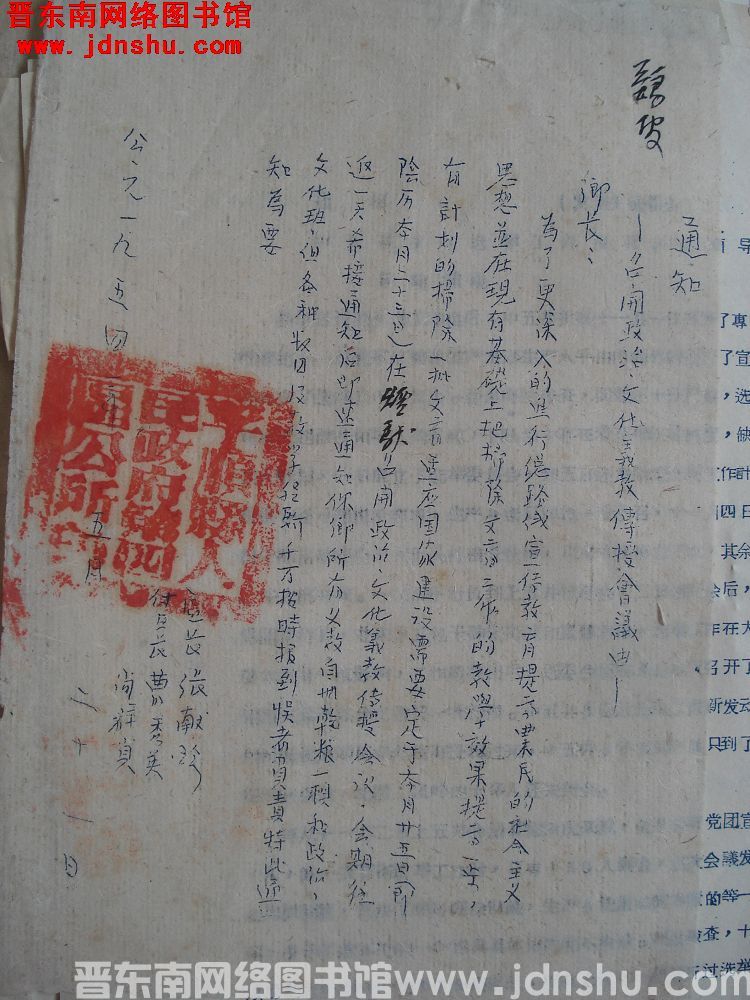 晋东南网络图书馆
www.jdnshu.com
通知
—召開政治文化義教傳授會議由—
鄉長:
為了更深入的進行總路線宣傳教育提高農民的社会主义
思想並在現有基礎上把掃除文盲工作的教學效果提高一步,
有計划的掃除一批文盲適应国家建设需要定于本月廿五日即
陰历本月二十三日在 召開政治文化義教傳授会议,会期往
返一天希接通知后即速通知你鄉所有义教自带乾粮一頓和政治,
文化班,组各种数目及教学经驗千万按時报到误者負責特此通
知為要
公元一九五四年 五月 二十一日
區長張献珍
付區長曹秀美
尚祥貞
人民政府第四區公所
导
了專
了宣
,选
,缺
工作計
四日
其余
会后,
作在大
召开了
新发动
只到了
党团宣
会議发
的等一
检查,十
过洗举
晋东南网络图书馆:www.jdnshu.com